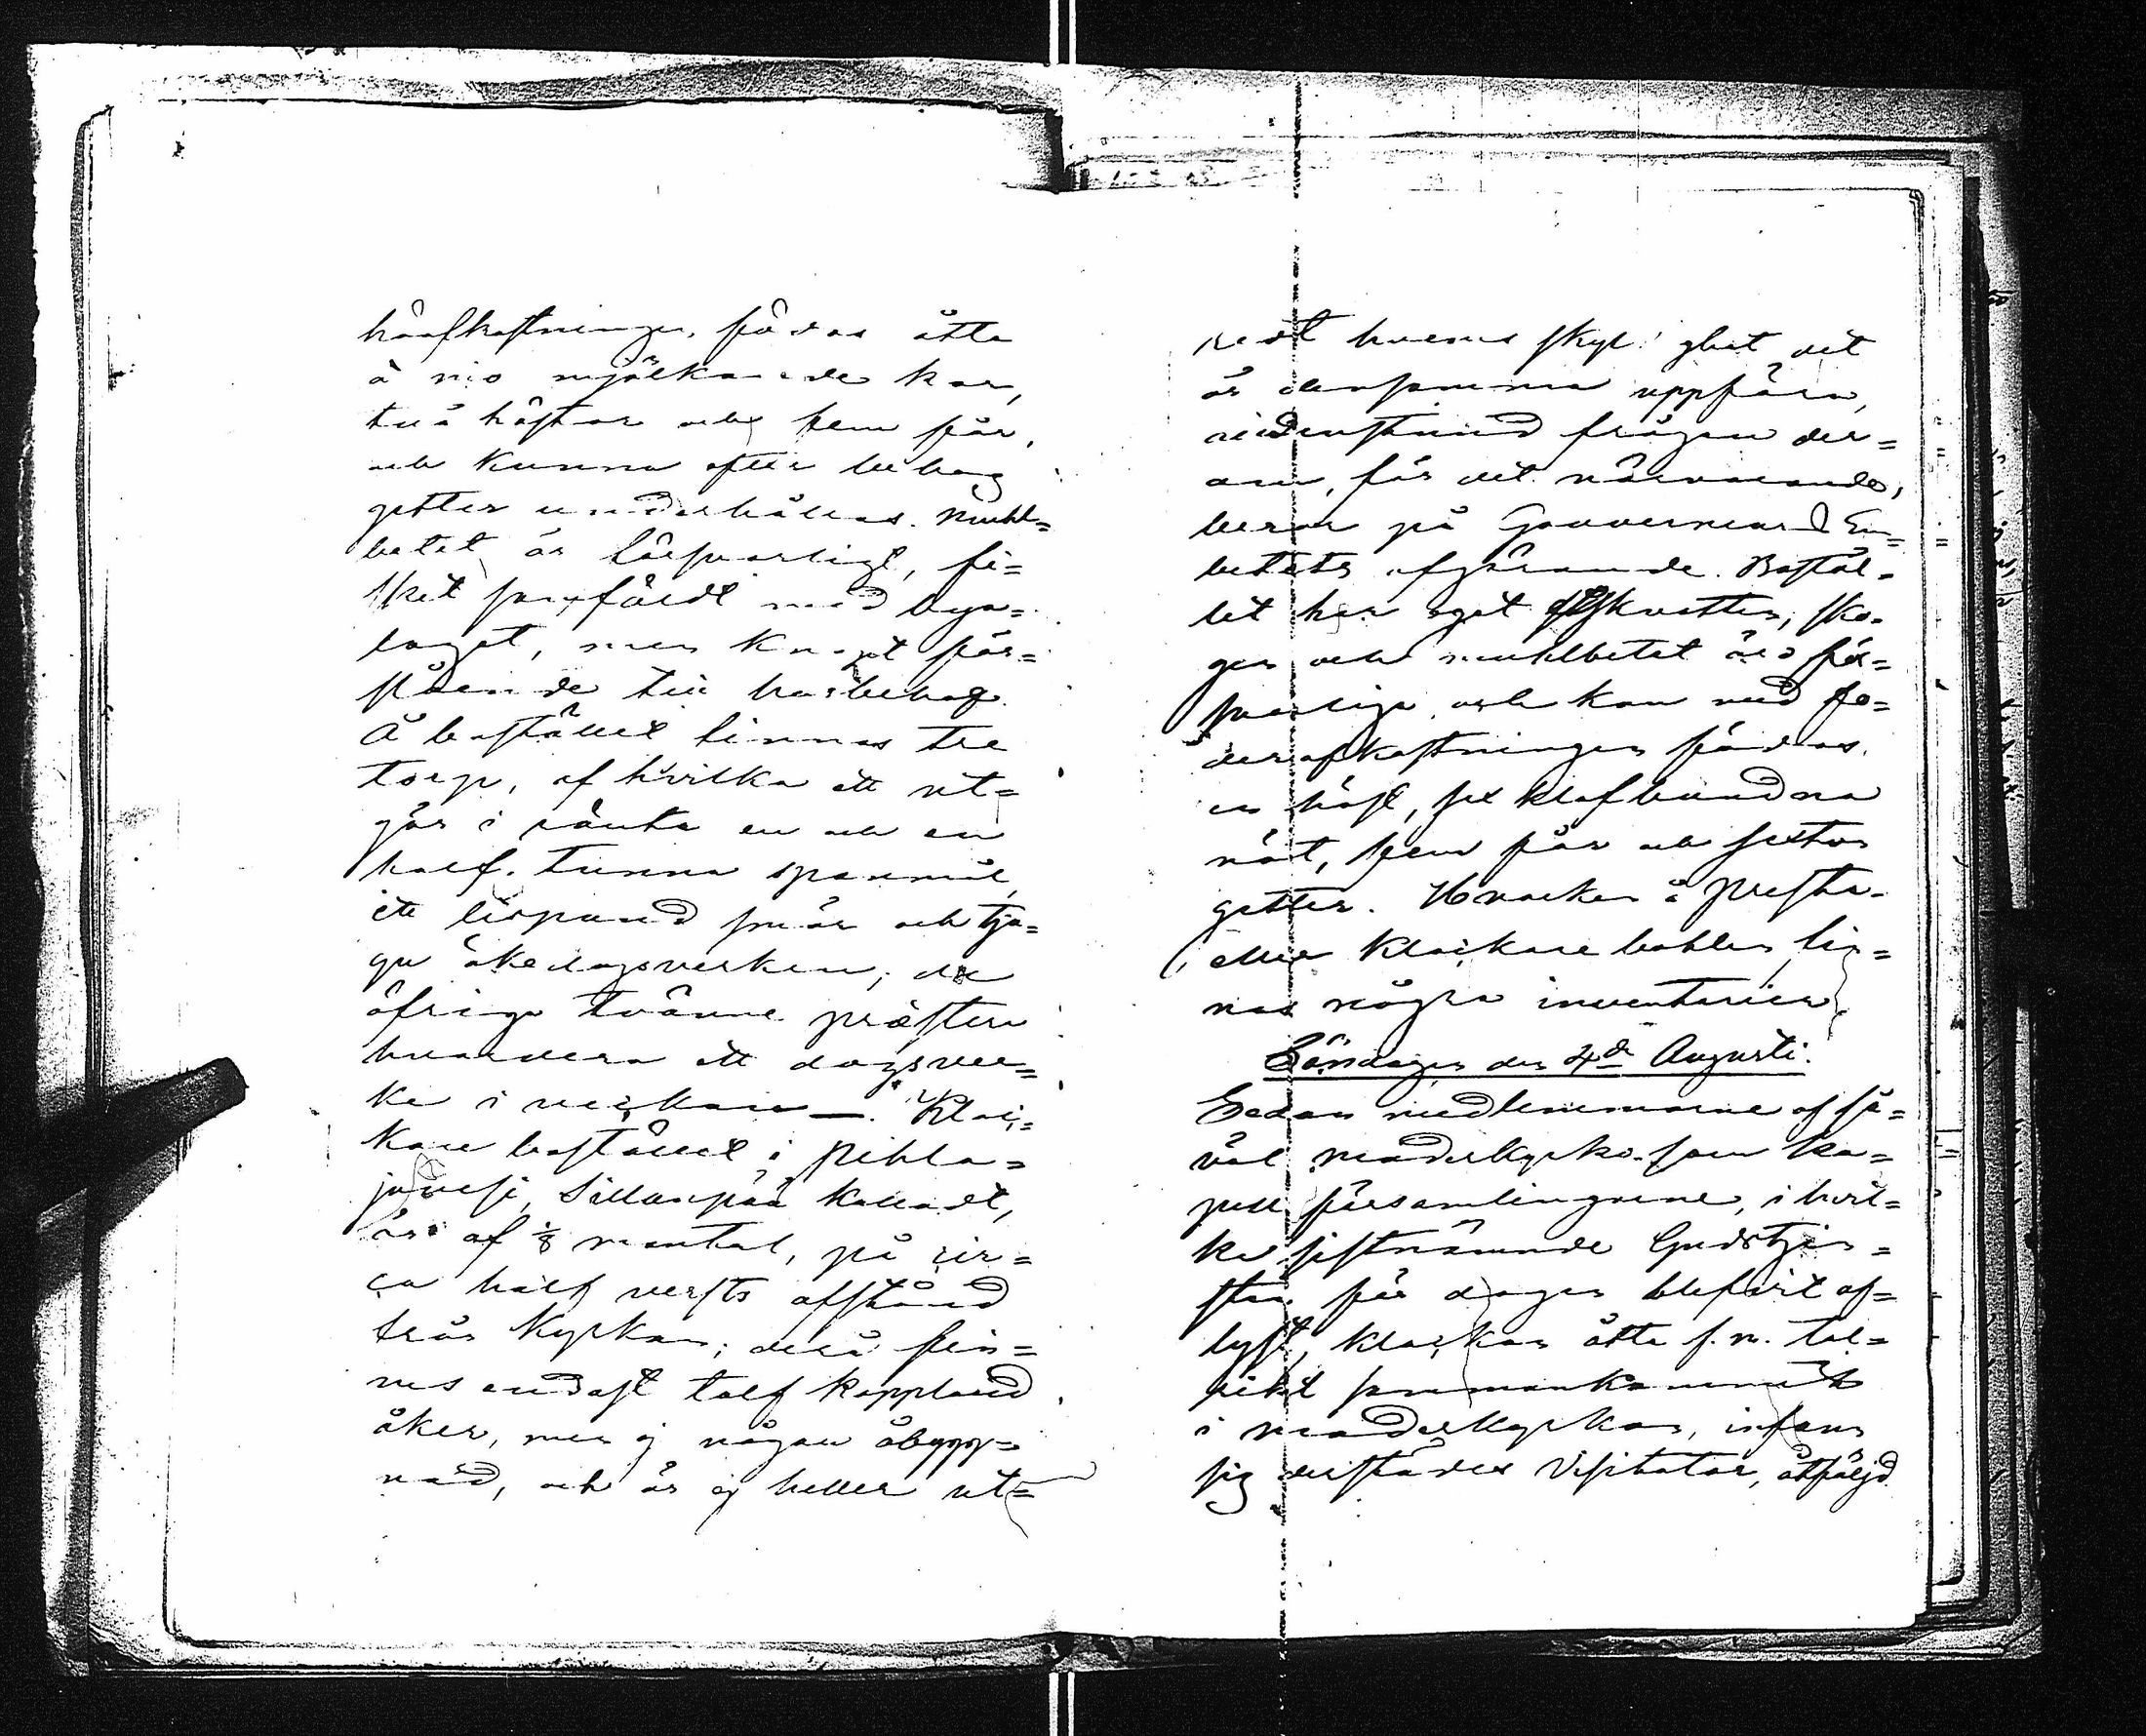 höafkastningen, födas åtta
à nio mjölkande kor,
två hästar och fem får,
och kunna efter behag
getter underhållas. Muhl=
betet är försvarligt, fi=
sket samfäldt med bya=
laget, men knapt för=
slående till husbehof.
Å bostället finnas tre
torp, af hvilka ett ut=
gör i ränta en och en
half tunna spanmål,
ett lispund smör och tju=
gu ökedagsverken; de
öfriga tvänne præstera
hvardera ett dagsver=
ke i veckan —. Kloc=
kare bostället i Pihla=
javesi, Sillanpää kalladt,
är af 1/8 mantal, på cir=
ca half versts afstånd
från Kyrkan; derå fin=
nes endast tolf kappland
åker, men ej någon åbygg=
nad, och är ej heller ut=
redt hvems skyldighet det
är densamma uppföra,
medan frågan der=
om, för det närvarande,
beror på Gouverneurs Em=
betets afgörande. Bostäl=
let har eget fiskvatten, sko=
gen och muhlbetet äro för=
svarliga, och kan med fo=
derafkastningen födas
en häst, sex klafbundna
nöt, fem får och sexton
getter. Hvarken å Presta-
eller Klockare bohlen fin=
nas några inventarier.
Söndagen den 4de Augusti.
Sedan medlemmarne af så=
väl moderkyrko- som ka=
pell församlingarne, i hvil=
ka sistnämnde Gudstjen=
sten för dagen blifvit af=
lyst, klockan åtta f.m. tal=
rikt sammankommit
i moderkyrkan, infann
sig derstädes Visitator, åtföljd